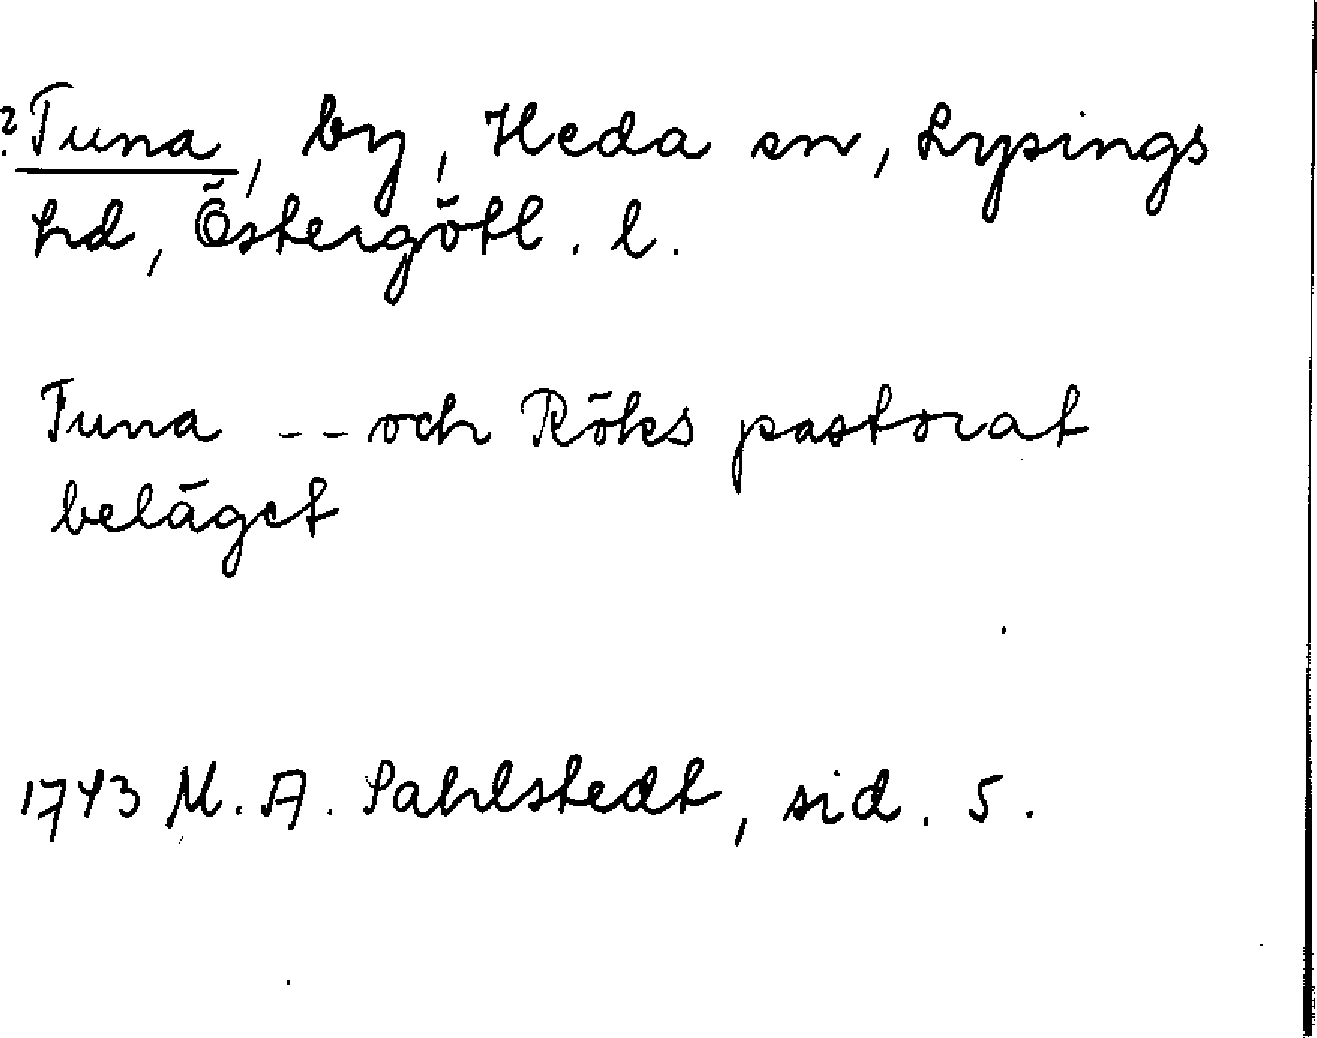 ?Tuna, by, Heda sn, Lysings
hd, Östergötl. l.
Tuna -- och Röks pastorat
beläget
1743 M. A. Sahlstedt, sid. 5.